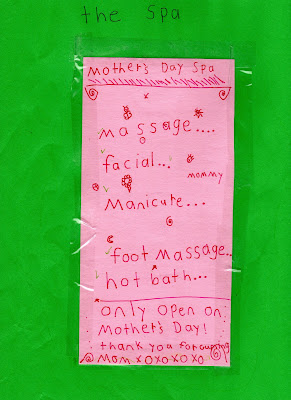 the Spa
Mother's Day Spa
massage....
facial...
mommy
Manicure...
foot massage..
hot bath...
only open on
Mother's Day!
thank you for
Mom XOXOXOXO